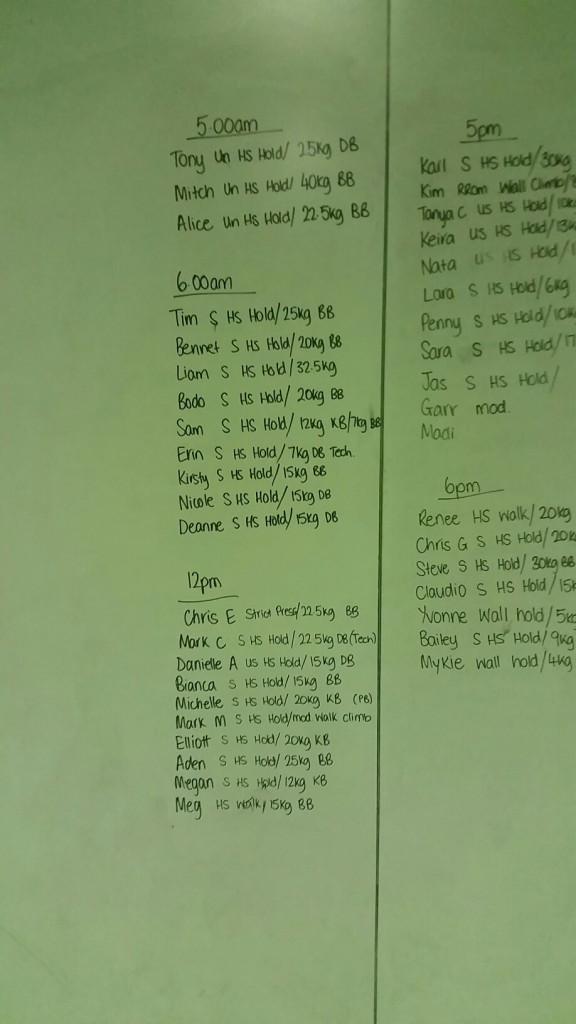 5.00am
Tony Un HS Hold/ 25kg DB
Mitch Un HS Hold/ 40kg BB
Alice Un HS Hold/ 22.5kg BB
6.00am
Tim S HS Hold/25kg BB
Bennet S HS Hold/20kg BB
Liam S HS Hold/32.5kg
Bodo S HS Hold/ 20kg BB
Sam S HS Hold/ 12kg KB/7kg BB
Erin S HS Hold/7kg DB Tech.
Kirsty S HS Hold/15kg BB
Nicole S HS Hold/15kg DB
Deanne S HS Hold/15kg DB
12pm
Chris E Strict Press/22.5kg BB
Mark C S HS Hold/22.5kg DB (Tech)
Danielle A US HS Hold/15kg DB
Bianca S HS Hold/15kg BB
Michelle S HS Hold/ 20kg KB (PB)
Mark M S HS Hold/mod walk climb
Elliott S HS Hold/20kg KB
Aden S HS Hold/25kg BB
Megan S HS Hold/12kg KB
Meg HS Walk/15kg BB
5pm
Karl S HS Hold/30kg
Kim Wall Climb/
Tanya C US HS Hold/
Keira US HS Hold/
Nata US HS Hold/
Lara S HS Hold/6kg
Penny S HS Hold/
Sara S HS Hold/
Jas S HS Hold/
Garr mod.
Madi
6pm
Renee HS Walk/20kg
Chris G S HS Hold/
Steve S HS Hold/30kg BB
Claudio S HS Hold/
Yvonne Wall hold/5kg
Bailey S HS Hold/9kg
Mykie Wall hold/4kg